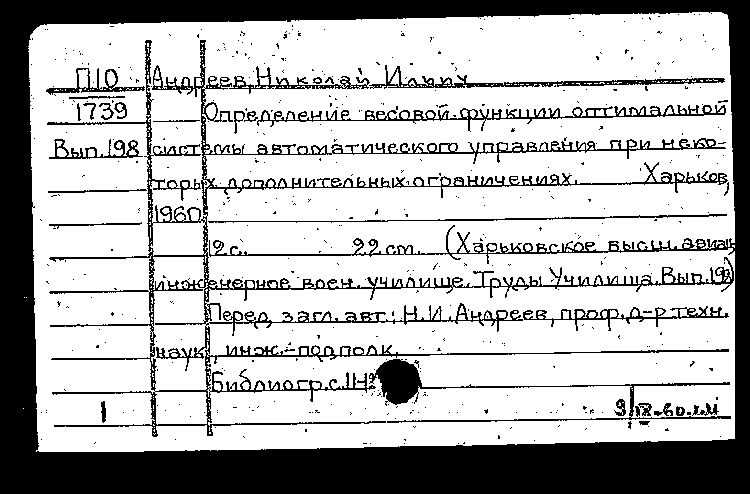 П10 Андреев, Николай Ильич
1739 Определение весовой функции оптимальной
Вып. 198 системы автоматического управления при неко-
торых дополнительных ограничениях. Харьков,
1960
12 с. 22 см. (Харьковское высш. авиац.
инженерное воен. училище. Труды Училища. Вып. 198)
Перед загл. авт.: Н.И. Андреев, проф. д-р техн.
наук, инж.-подполк.
Библиогр. с.
1